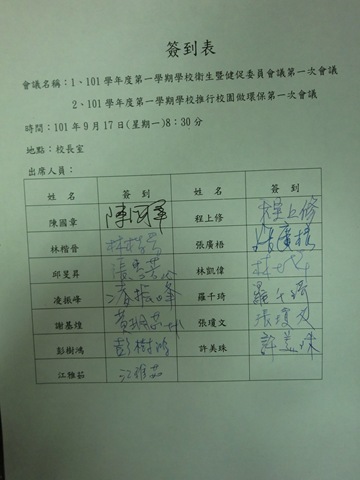 簽到表
會議名稱：1、101學年度第一學期學校衛生暨健促委員會議第一次會議
2、101學年度第一學期學校推行校園做環保第一次會議
時間：101年9月17日(星期一)8：30分
地點：校長室
出席人員：
姓 名 簽 到 姓 名 簽 到
陳國章 陳國章 程上修 程上修
林楷晉 張廣梧 張廣梧
邱旻昇 林凱偉
凌振峰 凌振峰 羅千琦 羅千琦
謝基煌 張瓊文 張瓊文
彭樹鴻 彭樹鴻 許美珠 許美珠
江雅茹 江雅茹